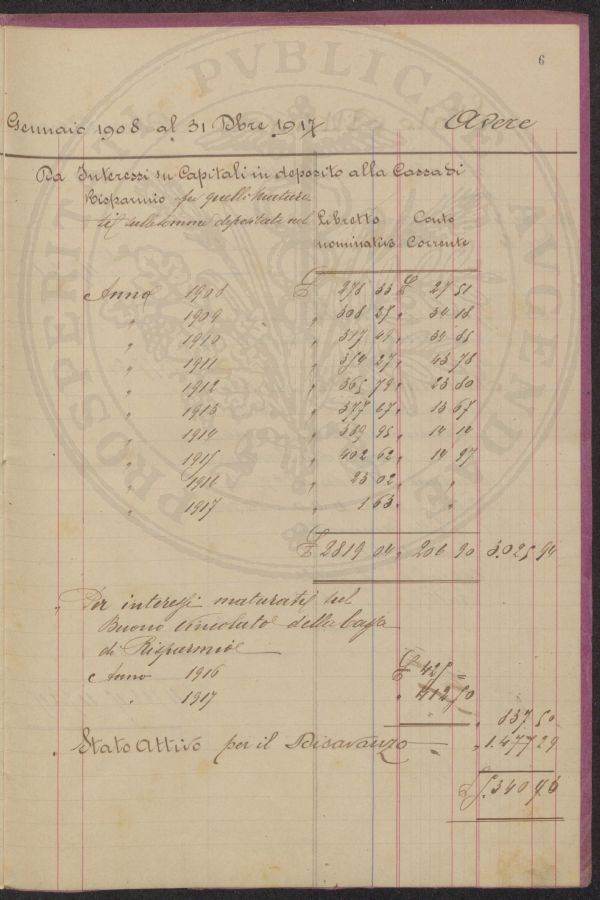 6
PROSPERITATI PVBLICAE AVGENDAE
Gennaio 1908 al 31 Dbre 1917 Avere
Da Interessi su Capitali in deposito alla Cassa di
Risparmio per quelli matura
ti sulle somme depositate nel Libretto Conto
nominativo Corrente
Anno 1908 £ 278 33 £ 27 51
" 1909 " 308 27 " 34 18
" 1910 " 317 49 " 34 85
" 1911 " 354 27 " 43 78
" 1912 " 365 79 " 23 80
" 1913 " 377 67 " 13 67
" 1914 " 389 95 " 14 14
" 1915 " 402 62 " 14 97
" 1916 " 23 02 " "
" 1917 " 1 63 " "
£ 2819 04 " 206 90 3.025 94
" Per interessi maturati sul
Buono vincolato della Cassa
di Risparmio
Anno 1916 £ 425 =
" 1917 " 412 50
" 837 50
" Stato Attivo per il Disavanzo = " 1.477 29
£ 5.340 73